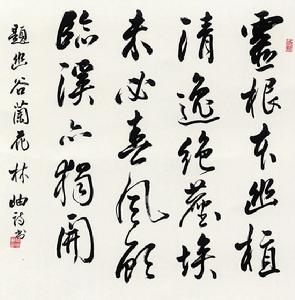 靈根本幽植
清逸絕塵埃
未必春風顧
臨溪亦獨開
題幽谷蘭花 林岫詩書